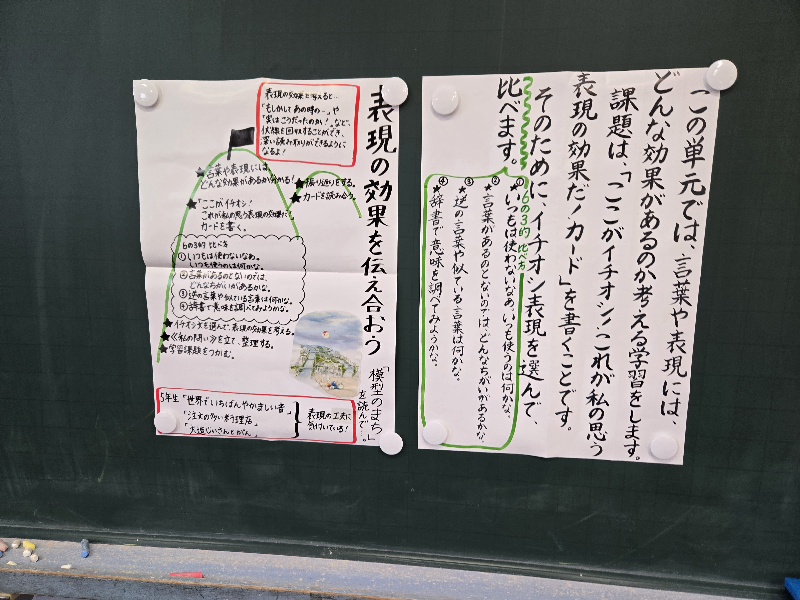 この単元では、言葉や表現には、
どんな効果があるのか考える学習をします。
課題は、「ここがイチオシ！これが私の思う
表現の効果だ！カード」を書くことです。
そのために、イチオシ表現を選んで、
比べます。
6の3的 比べ方
①いつもは使わないなあ、いつも使うのは何かな。
②言葉があるのとないのでは、どんなちがいがあるかな。
③逆の言葉や似ている言葉は何かな。
④辞書で意味を調べてみようかな。
表現の効果を伝え合おう
「模型のまち」
を読んで…。
表現の効果を考えると…
「もしかしてあの時の…」や
「実はこうだったのか！」など、
伏線を回収することができ、
深い読み取りができるように
なるよ！
★言葉や表現には、
どんな効果があるか分かる！
★振り返りをする。
★カードを読み合う。
★「ここがイチオシ！
これが私の思う表現の効果だ！」
カードを書く。
6の3的 比べ方
①いつもは使わないなあ。
いつも使うのは何かな。
②言葉があるのとないのでは、
どんなちがいがあるかな。
③逆の言葉や似ている言葉は何かな。
④辞書で意味を調べてみようかな。
★イチオシ文を選んで、表現の効果を考える。
★《私の問い》を立て、整理する。
★学習課題をつかむ。
5年生
「世界でいちばんやかましい音」
「注文の多い料理店」
「大造じいさんとがん」
表現の工夫に
気付いている！